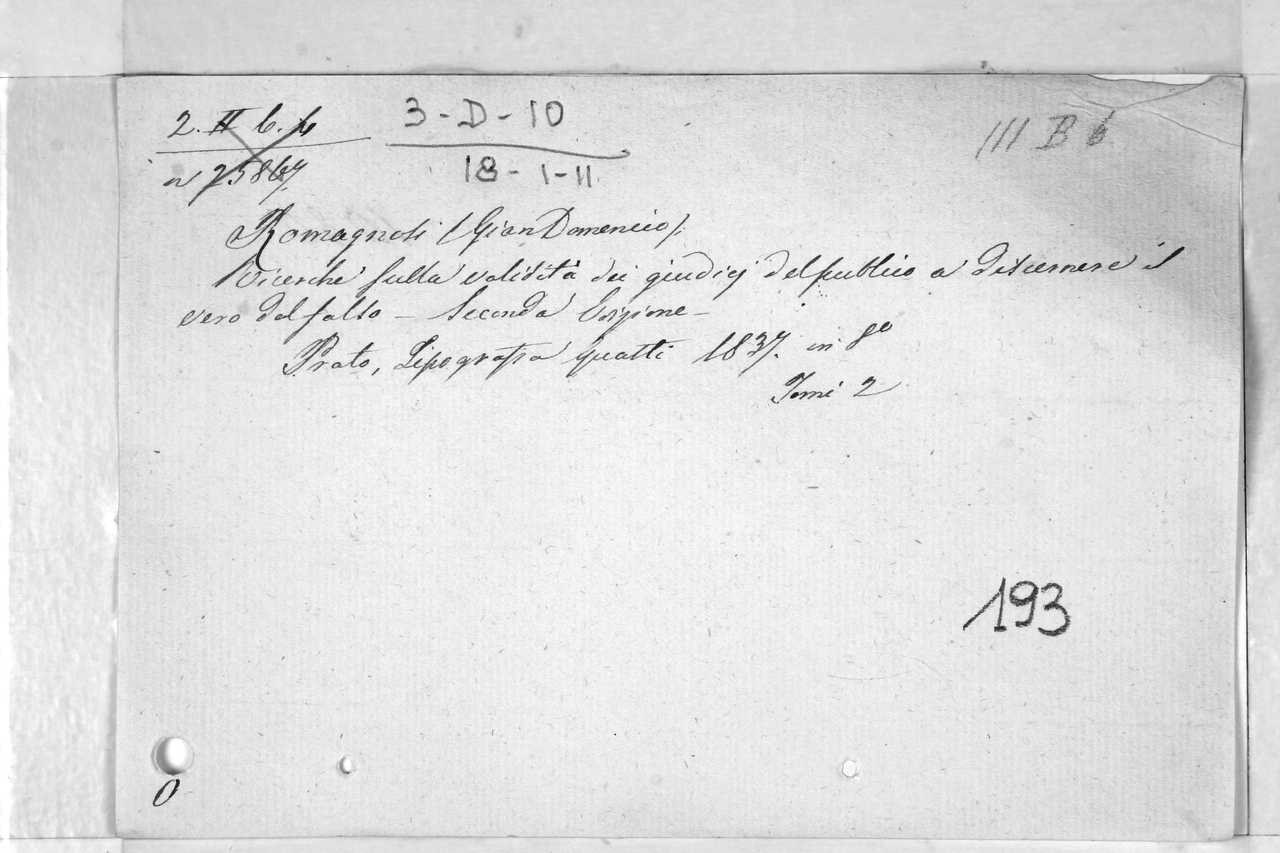 2. II 6. 4
3-D-10
III B 6
n 25867
18-1-11
Romagnosi (Gian Domenico).
Ricerche sulla validità dei giudicj del publico a discernere il
vero dal falso - Seconda Edizione -
Prato, Tipografia Guasti 1837. in 8º
Tomi 2
193
0